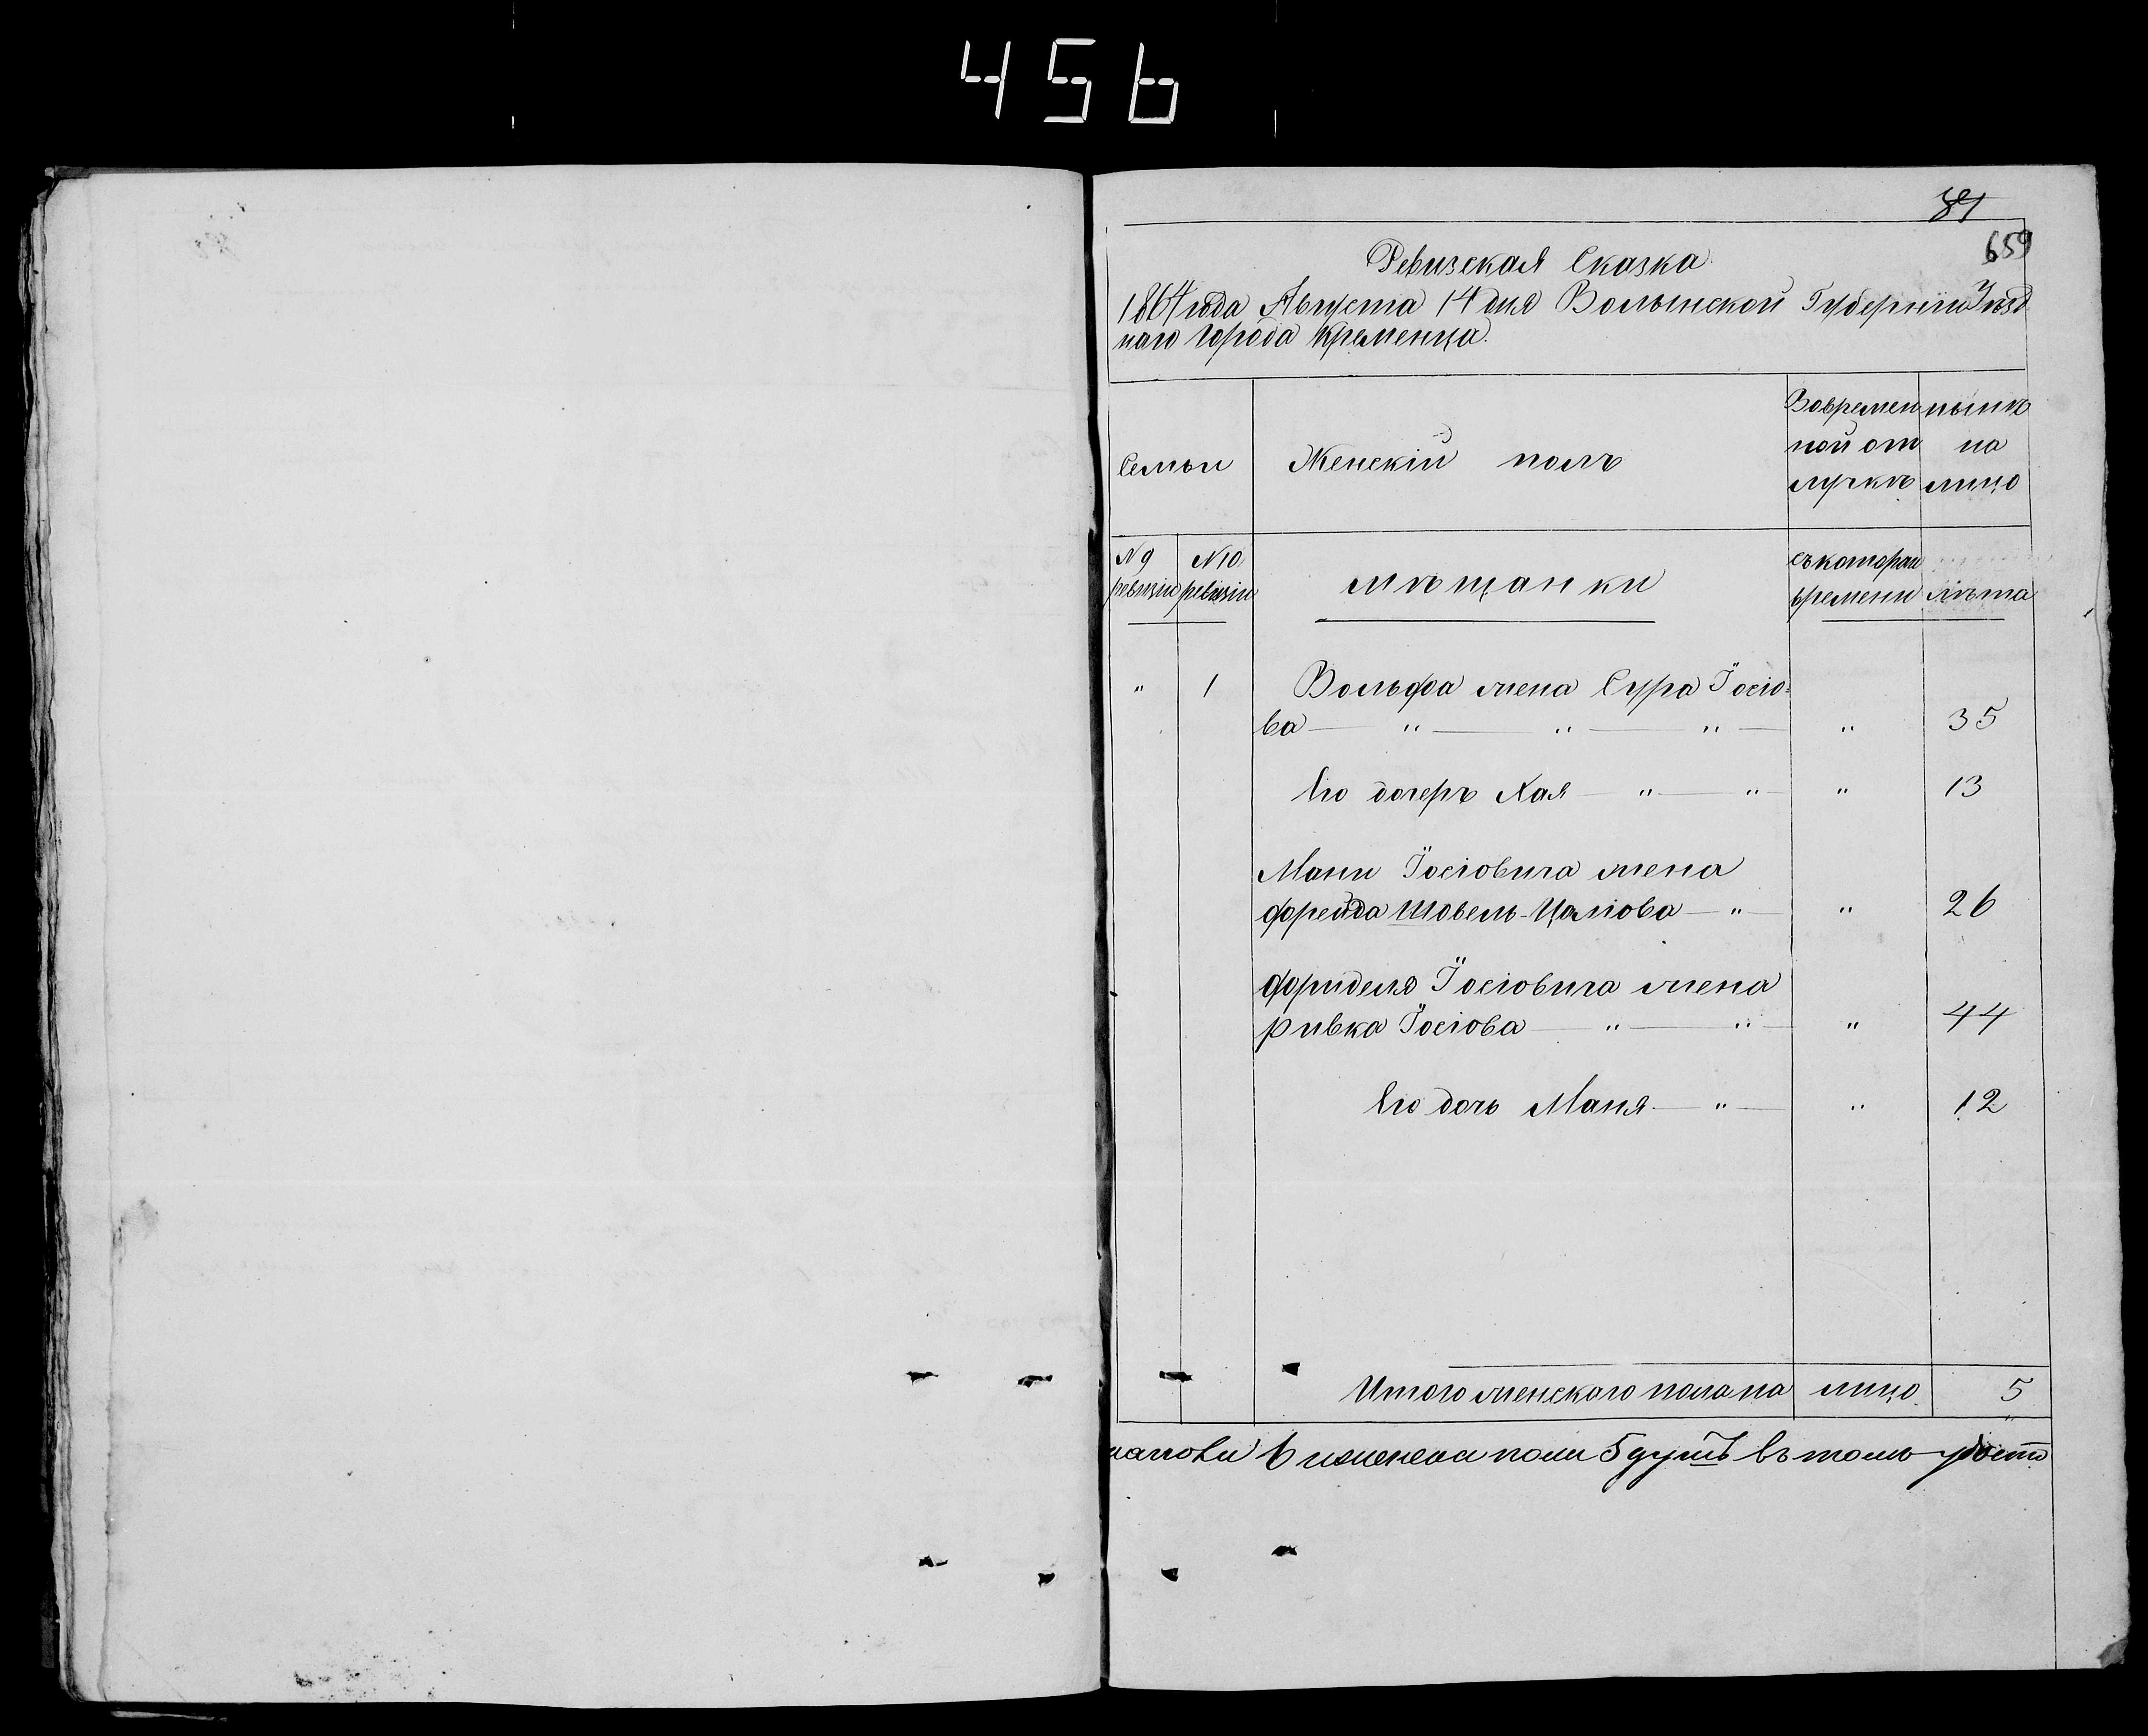 456
81
659
Ревизская Сказка
1864 года Августа 14 дня Волынской Губерніи Уѣзд
наго города Кременца.
Семьи
Женскій полъ
Вовремен
ной от
лучкѣ
нынѣ
на
лицо
N 9
ревизіи
N 10
ревизіи
мѣщанки
съкотораго
времени
лѣта
" 1 Вольфа жена Сура Іосіо-
ва — " — " — " — " 35
Его дочеръ Хая — " — " — " 13
Мани Іосіовича жена
фрейда Шовель-Цаліова — " — " 26
фриделя Іосіовича жена
ривка Іосіова — " — " — " 44
Его дочь Маня — " — " 12
Итого женского пола на лицо 5
6 и женска поли 5 душъ въ томъ удосто